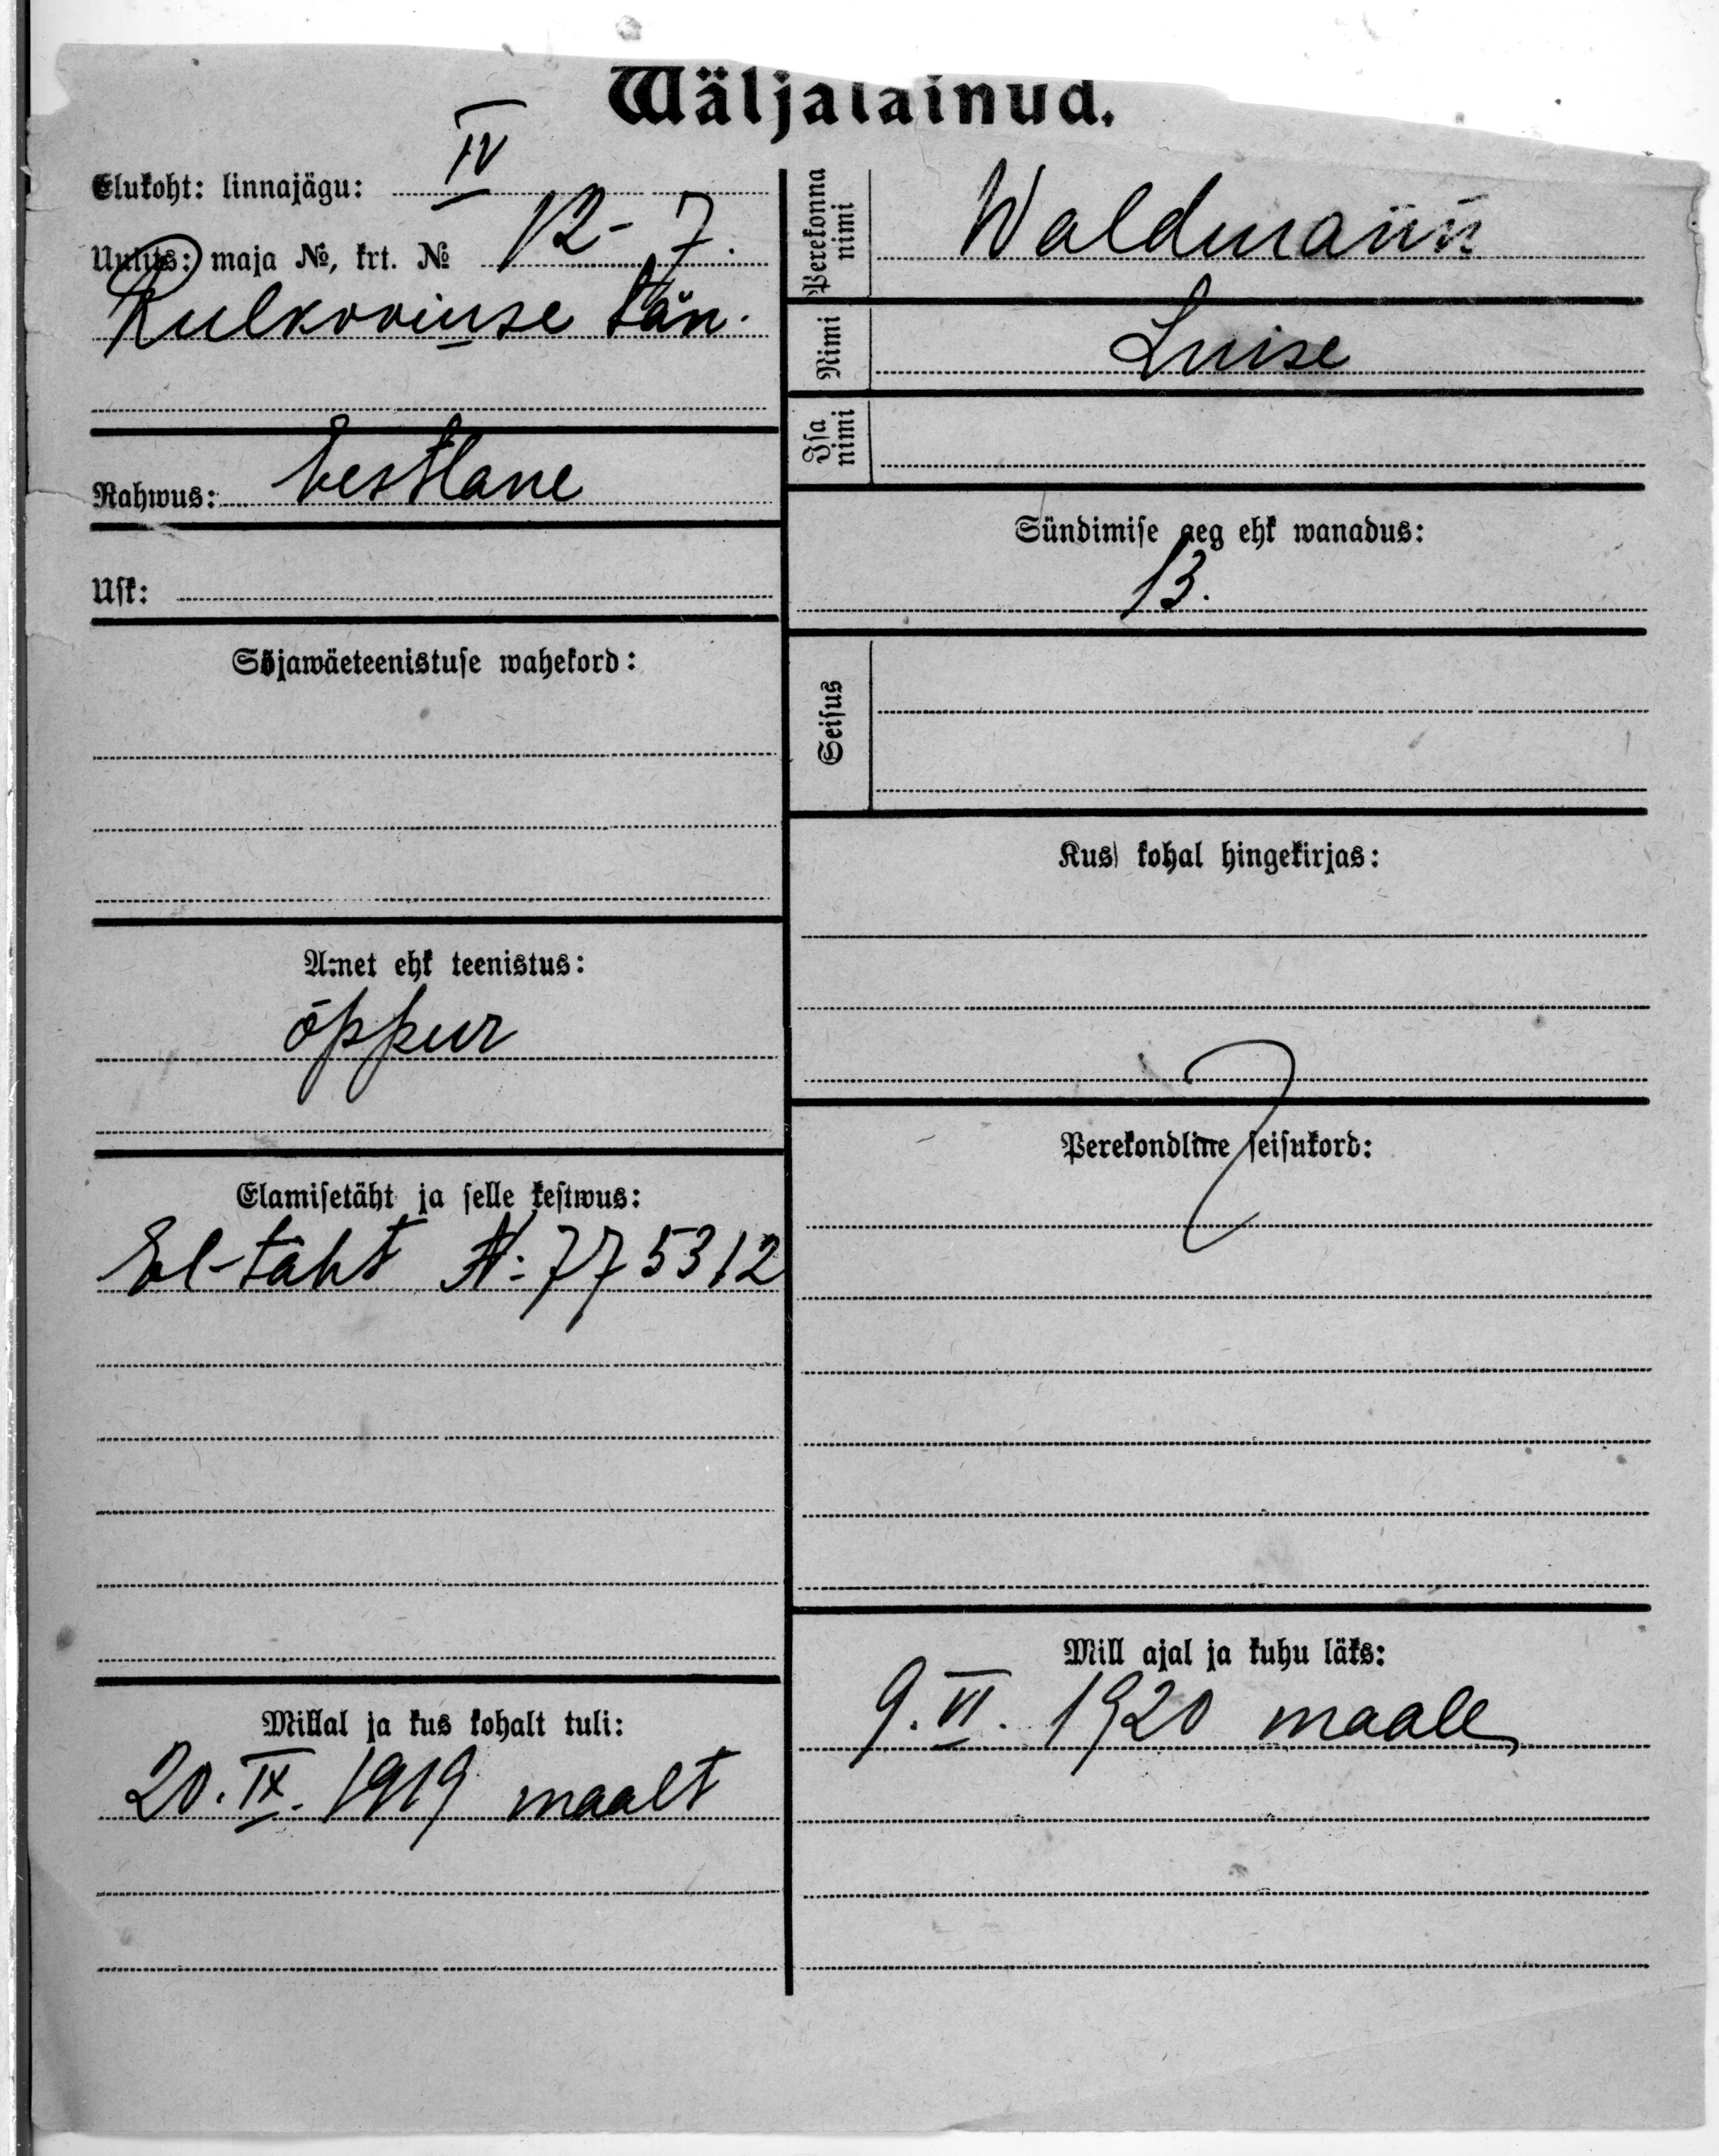 Wäljaläinud.
Elukoht: linnajägu: IV
Uulits: maja №, krt. № 12-7.
tän.
Rahwus: eestlane
Usk:
Sõjawäeteenistuse wahekord:
Amet ehk teenistus:
õppur
Elamisetäht ja selle kestwus:
El-täht N: 775312
Millal ja kus kohalt tuli:
20. IX. 1919 maalt
Perekonna nimi Waldmann
Nimi Luise
Isa nimi
Sündimise aeg ehk wanadus:
13.
Seisus
Kus kohal hingekirjas:
Perekondline seisukord:
Mill ajal ja kuhu läks:
9. VI. 1920 maale